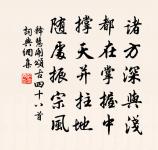 諸方深與淺
都在掌握中
撐天并拄地
隨處振宗風
釋慧開頌古四十八首
詞典網集